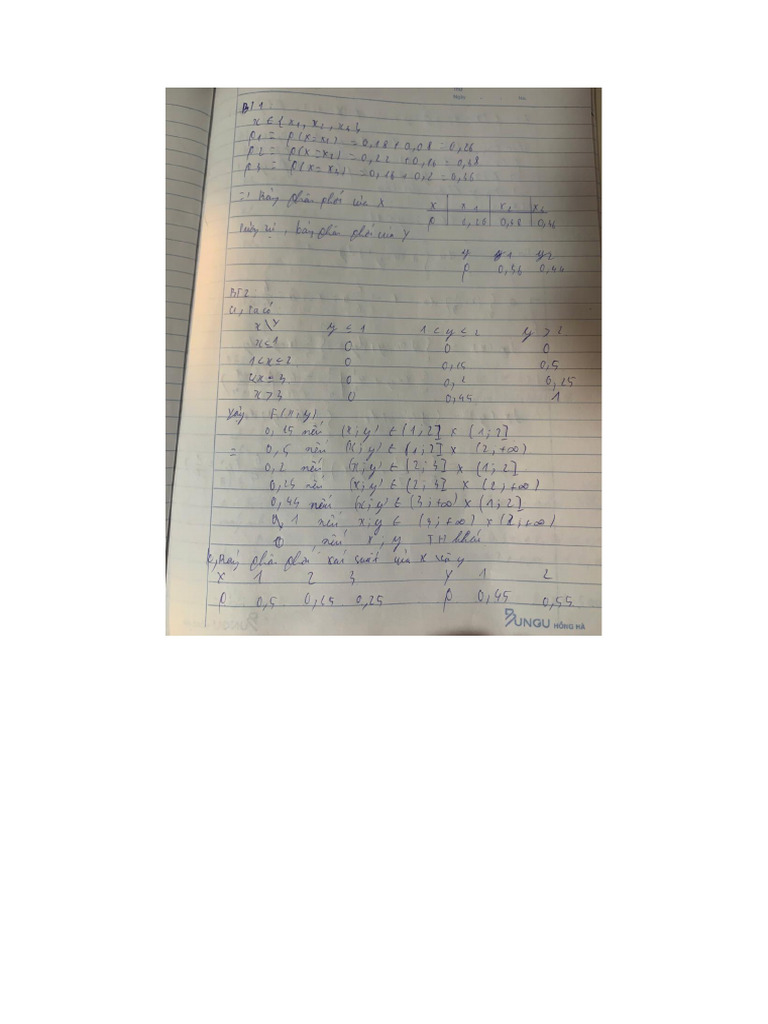 BT1
x ∈ {x₁, x₂, x₃}
p1 = p(x=x₁) = 0,18+0,08 = 0,26
p2 = p(x=x₂) = 0,22 + 0,16 = 0,38
p3 = p(x=x₃) = 0,16 + 0,2 = 0,36
=> Bảng phân phối của X
x x₁ x₂ x₃
P 0,26 0,38 0,36
Tương tự, bảng phân phối của Y
y y1 y2
P 0,56 0,44
BT2:
a, Ta có
x\Y y ≤ 1 1 < y ≤ 2 y > 2
x≤1 0 0 0
1<x≤2 0 0,15 0,5
2<x≤3 0 0,2 0,25
x>3 0 0,45 1
Vậy F(x;y)
0,15 nếu (x;y) ∈ (1;2] x (1;2]
= 0,5 nếu (x;y) ∈ (1;2] x (2;+∞)
0,2 nếu (x;y) ∈ (2;3] x (1;2]
0,25 nếu (x;y) ∈ (2;3] x (2;+∞)
0,45 nếu (x;y) ∈ (3;+∞) x (1;2]
1 nếu x;y ∈ (3;+∞) x (2;+∞)
0, nếu x;y TH khác
Bảng phân phối xác suất của X và y
X 1 2 3 Y 1 2
P 0,5 0,25 0,25 P 0,45 0,55
BUNGU HỒNG HÀ